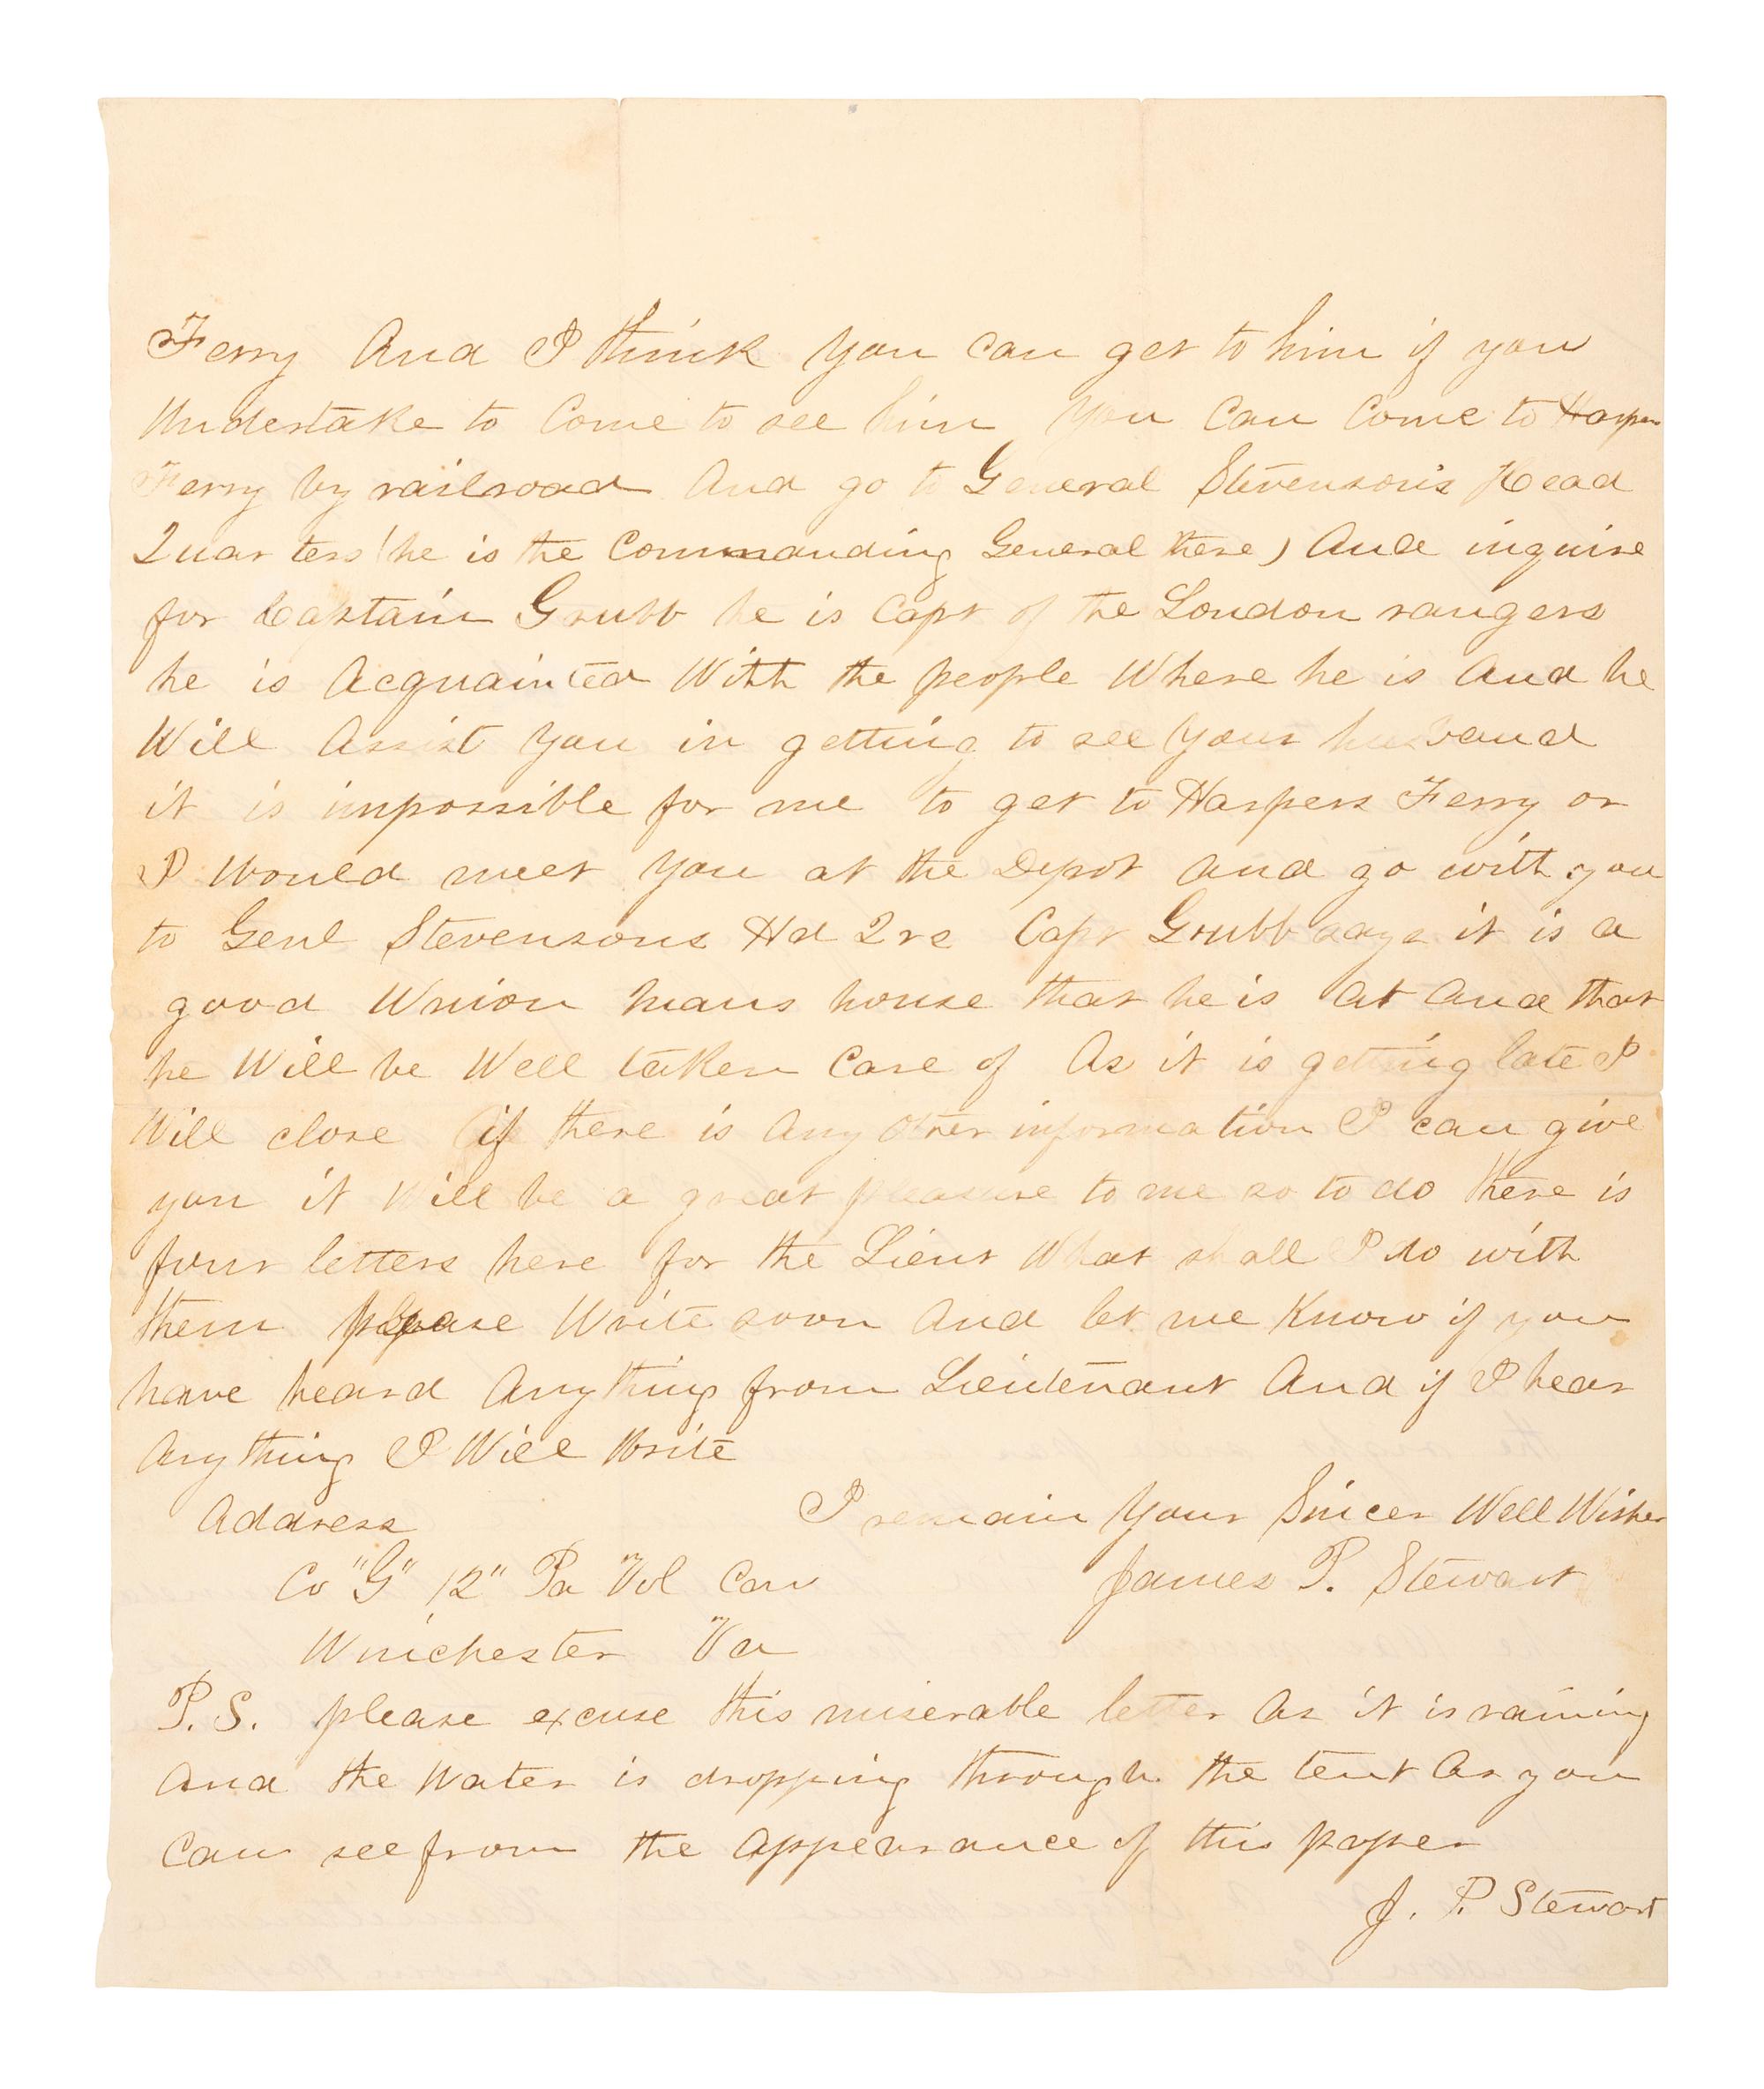 Ferry And I think you can get to him if you
Undertake to Come to see him you Can Come to Harpers
Ferry by railroad And go to General Stevenson's Head
Quarters (he is the Commanding General there) And inquire
for Captain Grubb he is Capt of the London rangers
he is Acquainted With the people Where he is And he
Will Assist you in getting to see your husband
it is impossible for me to get to Harpers Ferry or
I Would meet you at the Depot and go with you
to Genl Stevensons Hd Qrs Capt Grubb says it is a
good Union mans house that he is At And that
he Will be Well taken Care of As it is getting late I
Will close if there is Any other information I can give
you it Will be a great pleasure to me so to do there is
four letters here for the Lieut What shall I do with
them please Write soon And let me Know if you
have heard Anything from Lieutenant And if I hear
Anything I Will Write
Address I remain your Sincer Well Wisher
Co "G" 12" Pa Vol Cav James P. Stewart
Winchester Va
P.S. please excuse this miserable letter As it is raining
And the Water is dropping through the tent As you
Can see from the Appearance of this paper
J. P. Stewart